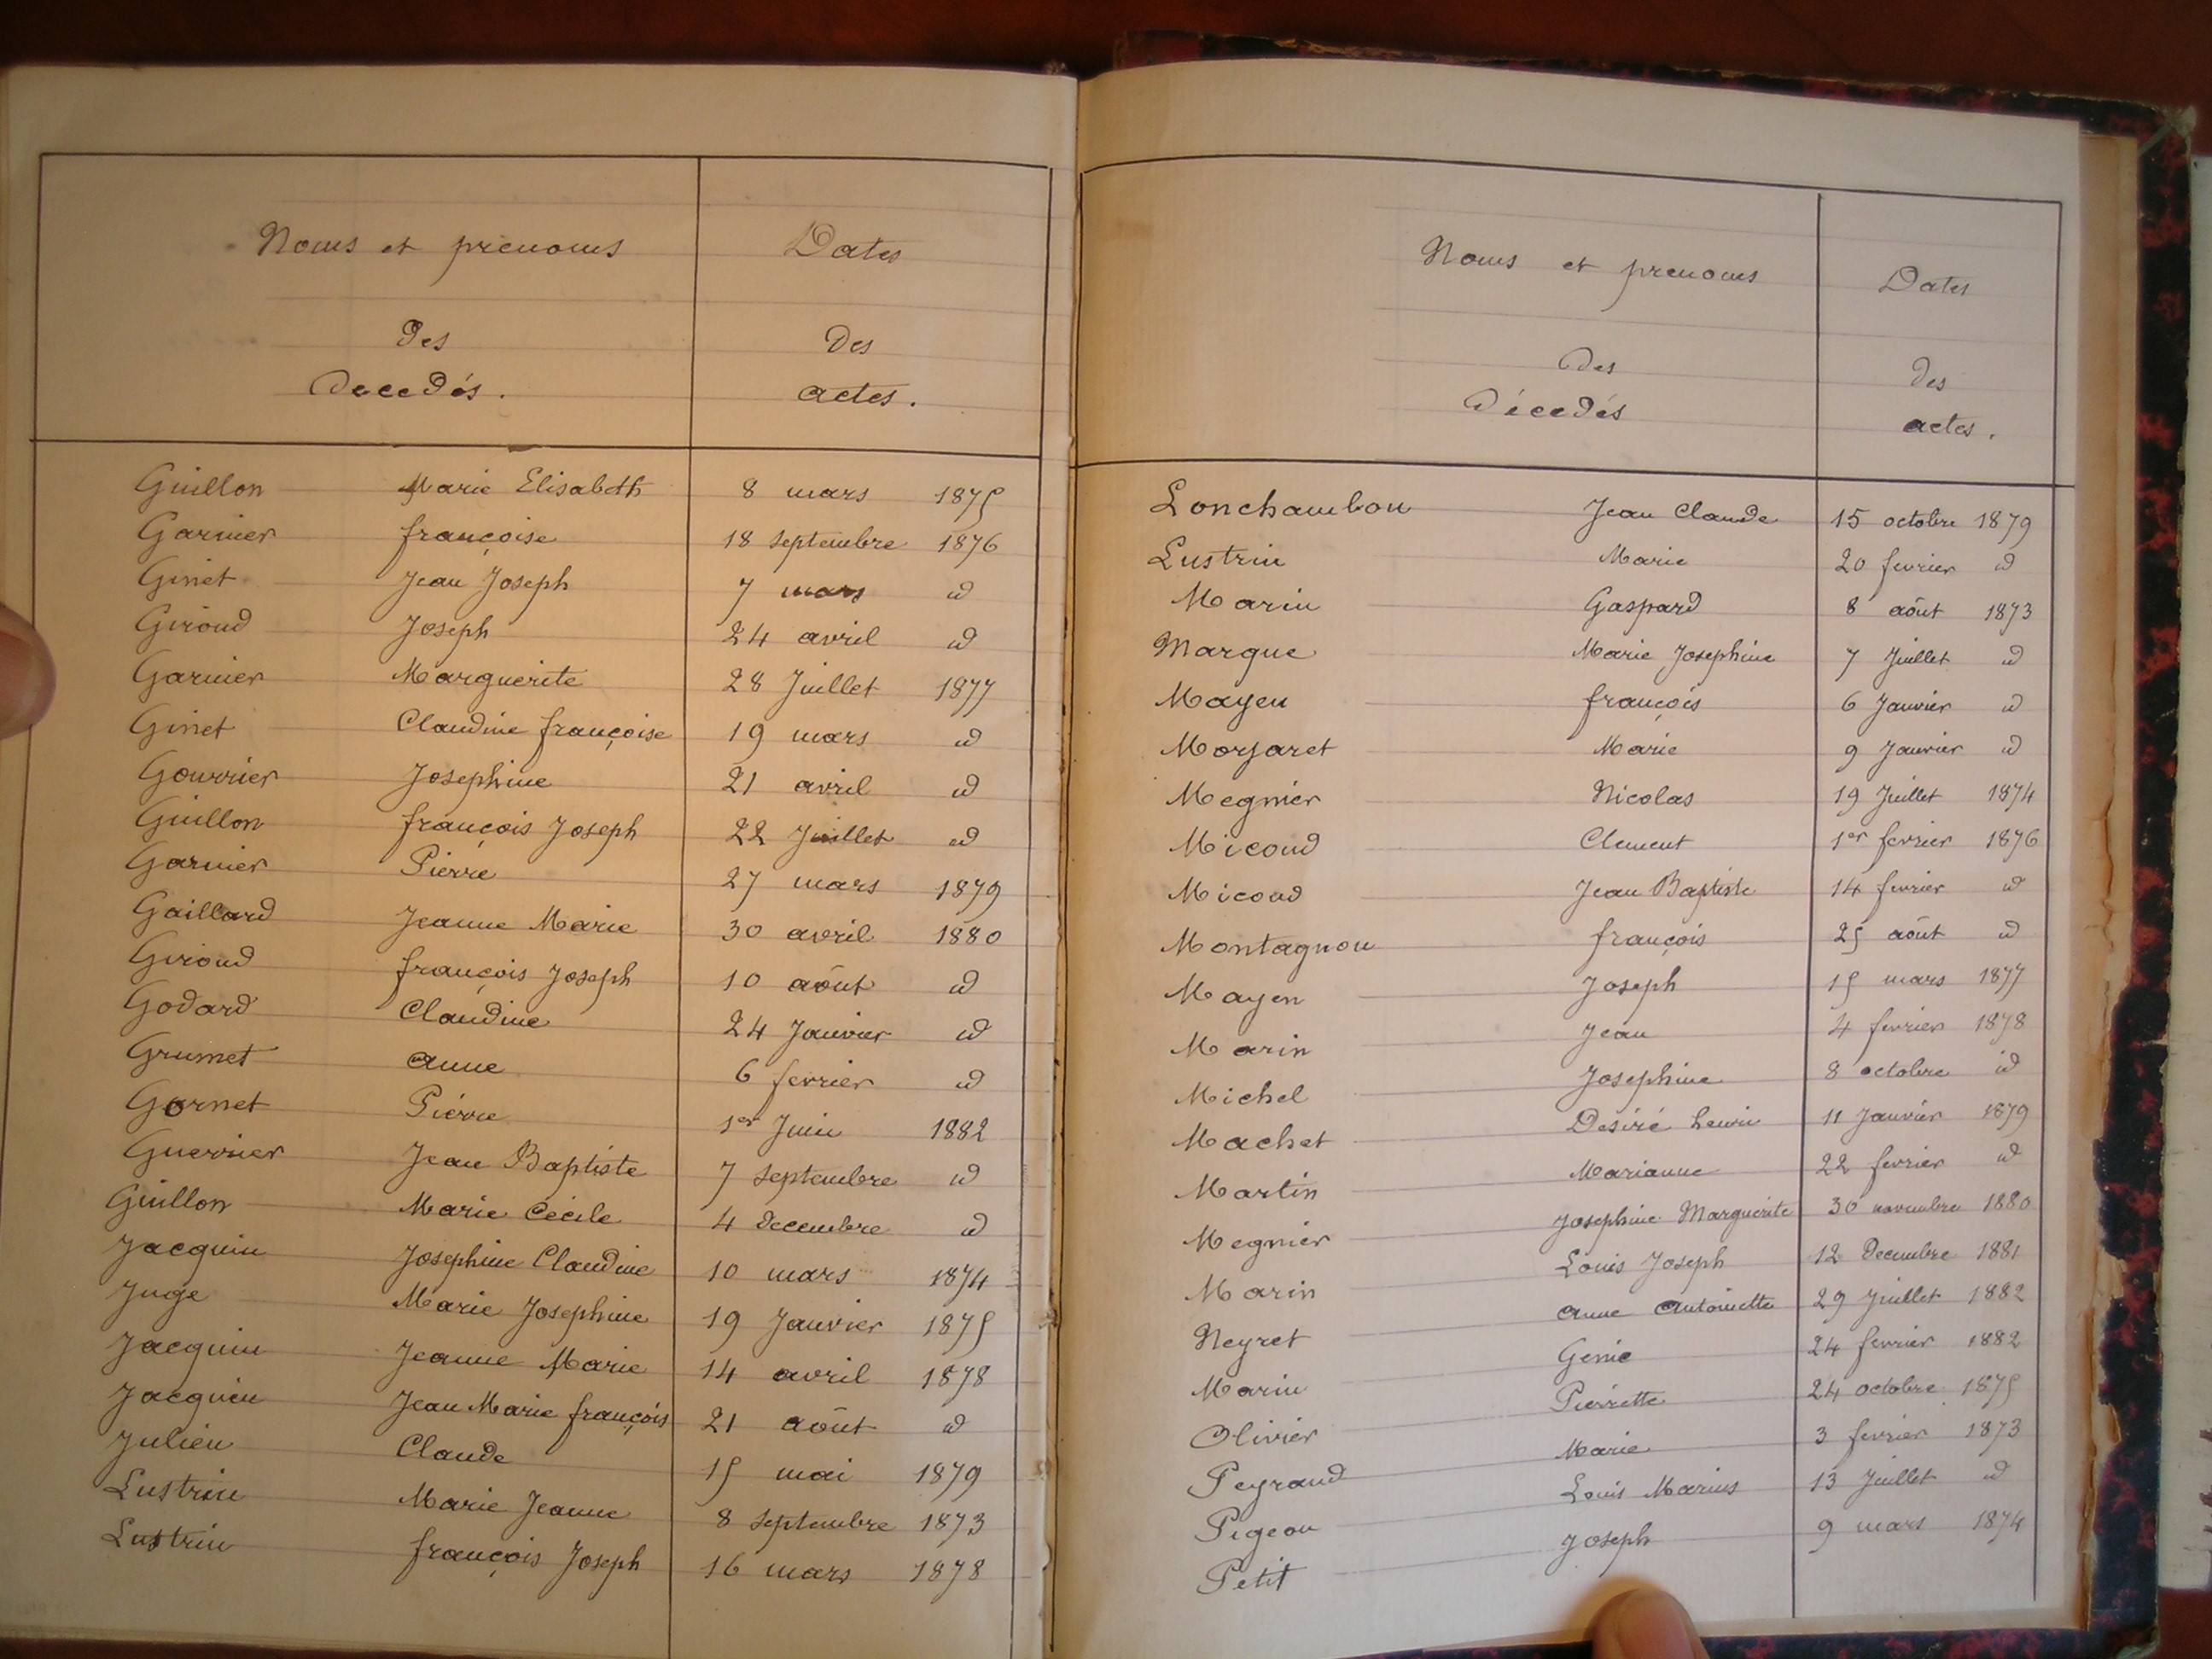 Noms et prenoms Dates
des des
Decedés. actes.
Guillon Marie Elisabeth 8 mars 1875
Garnier françoise 18 septembre 1876
Ginet Jean Joseph 7 mars id
Giroud Joseph 24 avril id
Garnier Marguerite 28 Juillet 1877
Ginet Claudine françoise 19 mars id
Gourrier Josephine 21 avril id
Guillon françois Joseph 22 Juillet id
Garnier Pierre 27 mars 1879
Gaillard Jeanne Marie 30 avril 1880
Giroud françois Joseph 10 août id
Godard Claudine 24 Janvier id
Grumet anne 6 fevrier id
Gornet Piérre 1er Juin 1882
Guerrier Jean Baptiste 7 septembre id
Guillon Marie Cécile 4 decembre id
Jacquin Josephine Claudine 10 mars 1874
Juge Marie Josephine 19 Janvier 1875
Jacquin Jeanne Marie 14 avril 1878
Jacquin Jean Marie françois 21 août id
Julien Claude 15 mai 1879
Lustrin Marie Jeanne 8 septembre 1873
Lustrin françois Joseph 16 mars 1878
Noms et prenoms Dates
des des
Décedés actes.
Lonchambon Jean Claude 15 octobre 1879
Lustrin Marie 20 fevrier id
Marin Gaspard 8 août 1873
Margue Marie Josephine 7 Juillet id
Mayen françois 6 Janvier id
Morjaret Marie 9 Janvier id
Megnier Nicolas 19 Juillet 1874
Micoud Clement 1er fevrier 1876
Micoud Jean Baptiste 14 fevrier id
Montagnon françois 25 août id
Mayen Joseph 15 mars 1877
Marin Jean 4 fevrier 1878
Michel Josephine 8 octobre id
Machet Desiré henri 11 Janvier 1879
Martin Marianne 22 fevrier id
Megnier Josephine Marguerite 30 novembre 1880
Marin Louis Joseph 12 decembre 1881
Neyret anne antoinette 29 Juillet 1882
Marin Genie 24 fevrier 1882
Olivier Pierrette 24 octobre 1875
Peyraud Marie 3 fevrier 1873
Pigeon Louis Marius 13 Juillet id
Petit Joseph 9 mars 1874